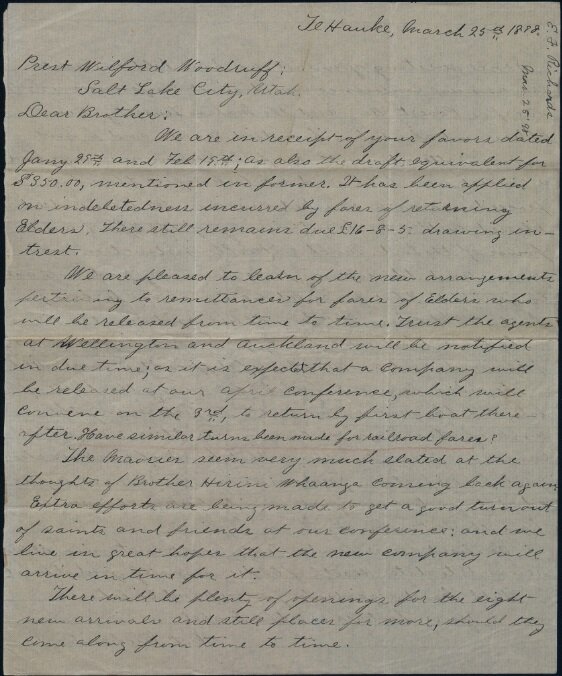 Te Hauke, March 25th, 1898.
E. F. Richards
Mar 25 '98
Prest Wilford Woodruff:
Salt Lake City, Utah.
Dear Brother:
We are in receipt of your favors dated
Jany 29th and Feb 15th; as also the draft equivalent for
$350.00, mentioned in former. It has been applied
on indebetedness incurred by fares of returning
Elders. There still remains due £16-8-5 drawing in-
trest.
We are pleased to learn of the new arrangements
pertaining to remittances for fares of Elders who
will be released from time to time. Trust the agents
at Wellington and Auckland will be notified
in due time; as it is expected that a company will
be released at our April conference, which will
convene on the 3rd, to return by first boat there-
after. Have similar turns been made for railroad fares?
The Maories seem very much elated at the
thoughts of Brother Hirini Whaanga coming back again.
Extra efforts are being made to get a good turnout
of saints and friends at our conference: and we
live in great hopes that the new company will
arrive in time for it.
There will be plenty of openings for the eight
new arrivals and still places for more, should they
come along from time to time.